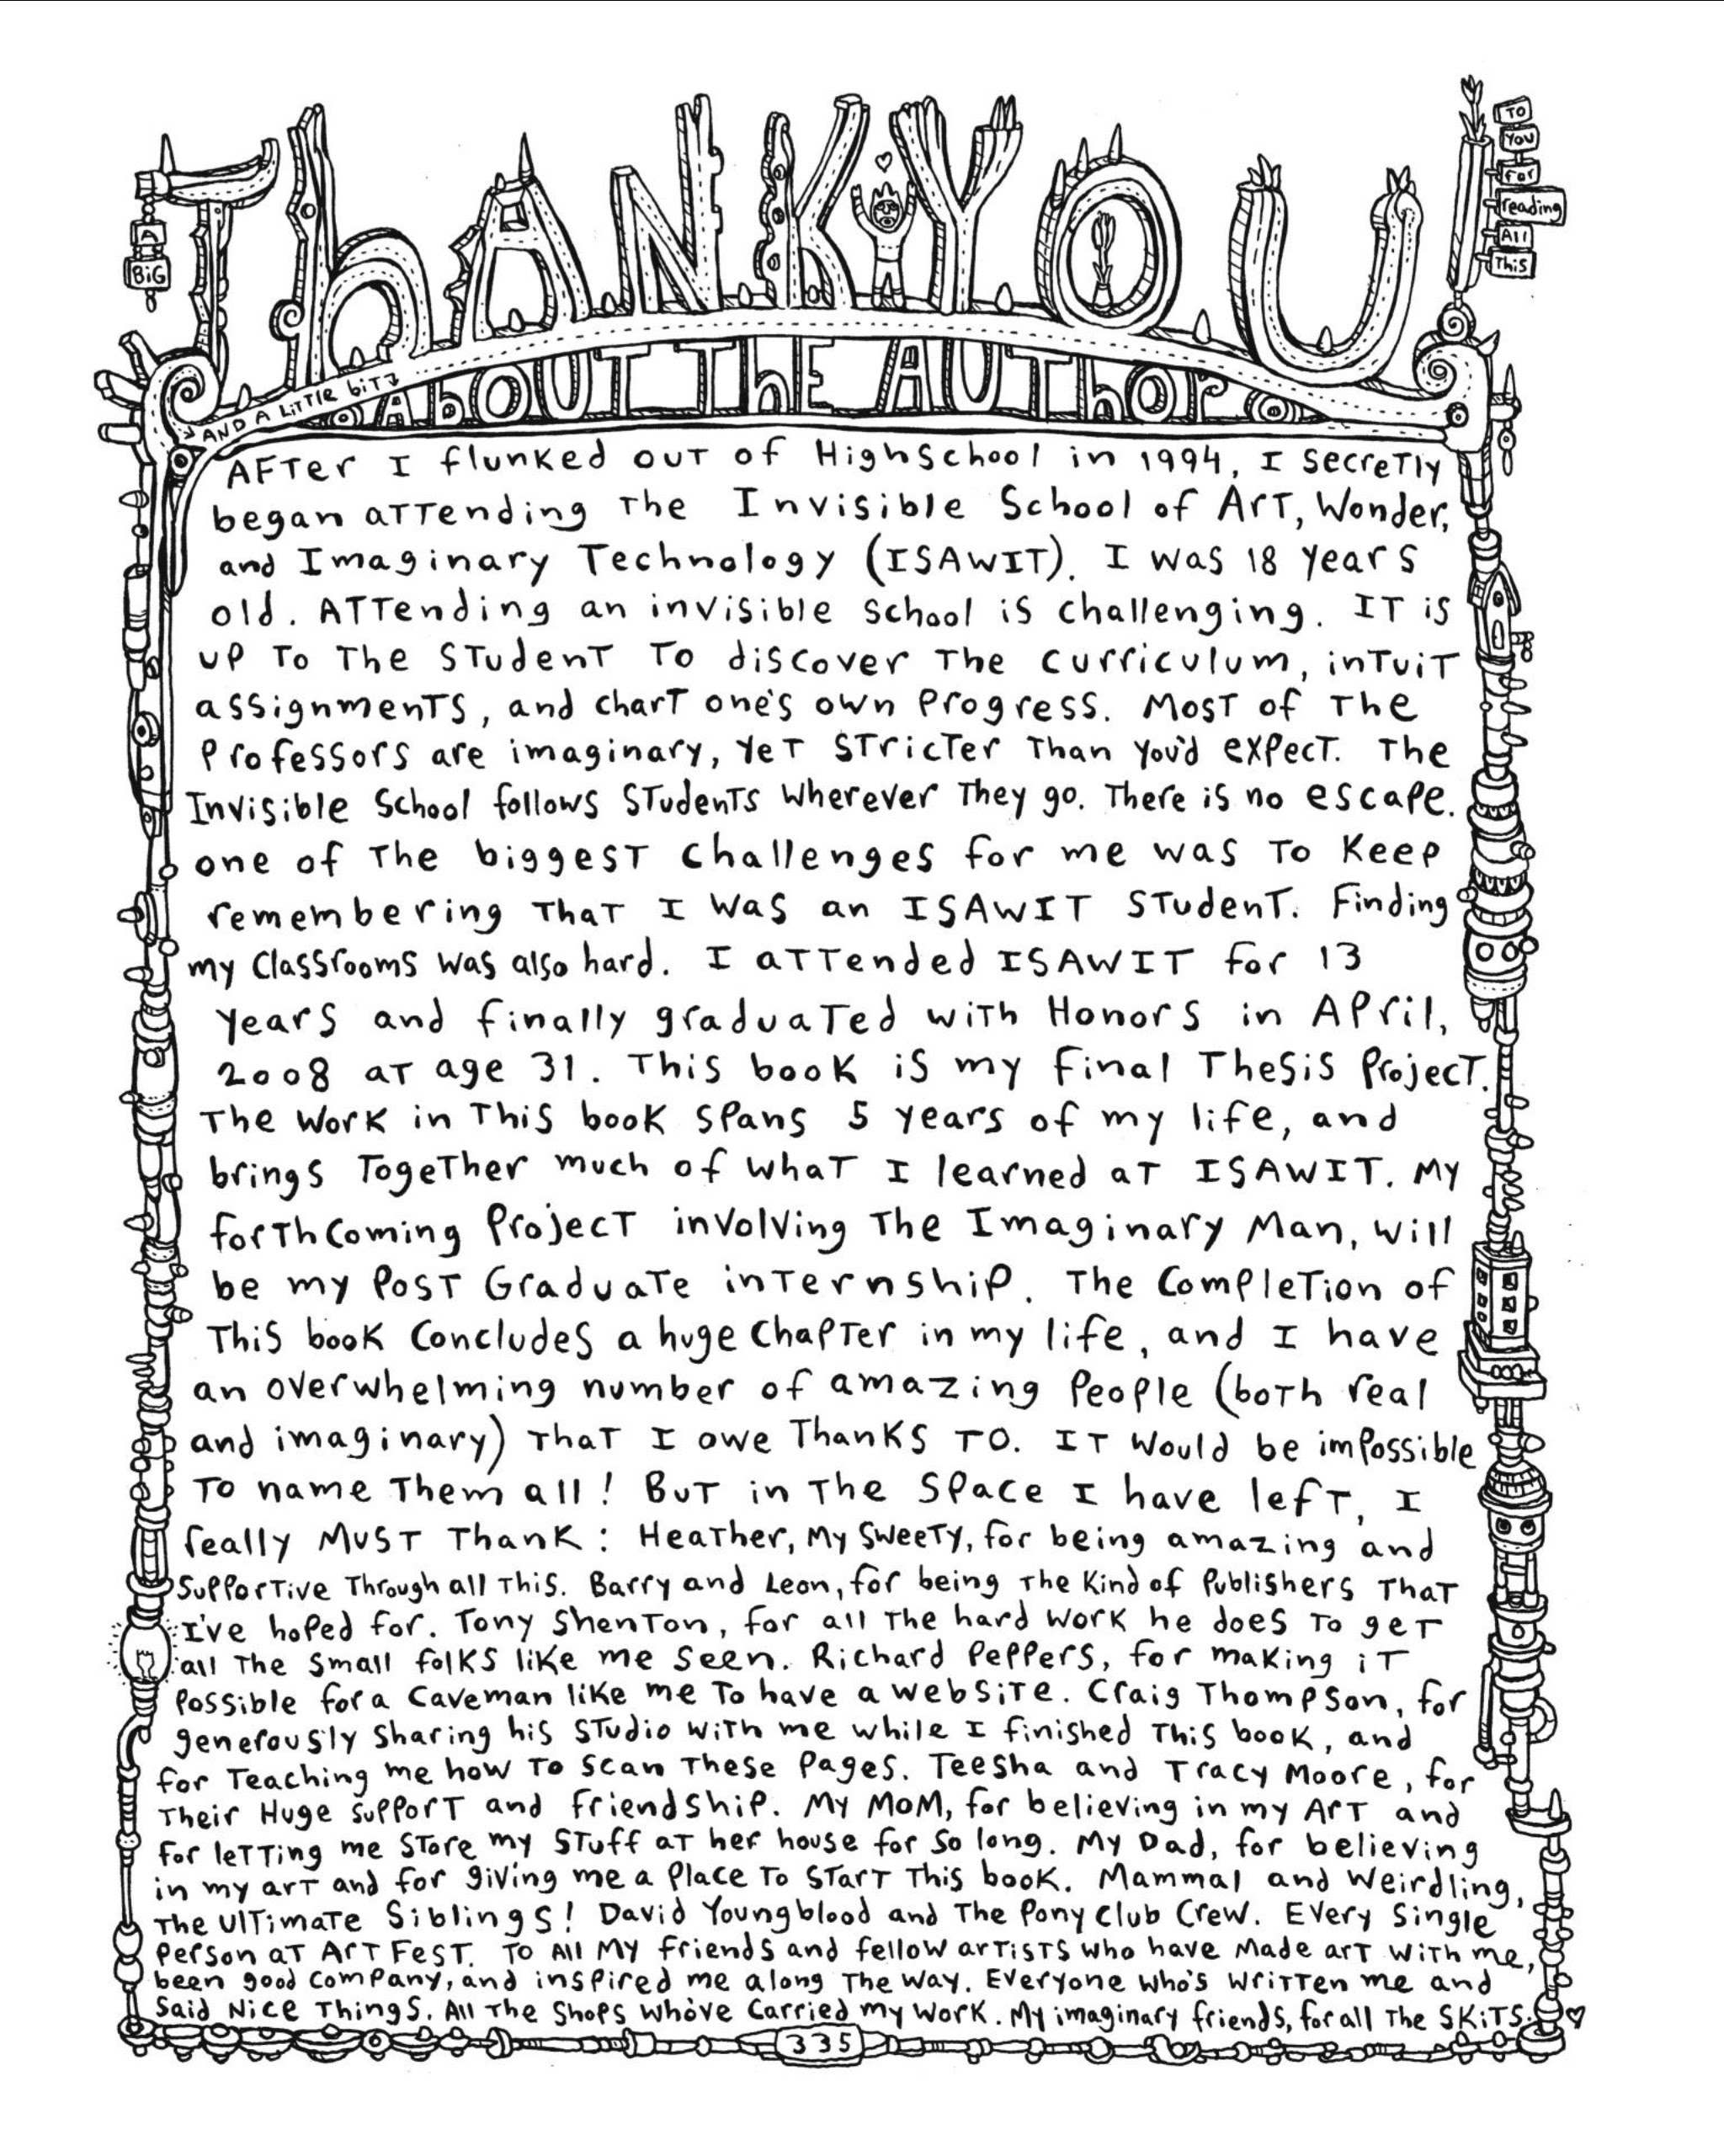 A
BiG
ThANK YOU
TO
You
for
reading
All
This
AND A LiTTlE biT
AbOUT ThE AUThOr
AFTer I flunked out of Highschool in 1994, I secretly
began attending the Invisible School of Art, Wonder,
and Imaginary Technology (ISAWIT). I was 18 years
old. Attending an invisible school is challenging. It is
up to the student to discover the curriculum, intuit
assignments, and chart one's own progress. Most of the
Professors are imaginary, yet stricter than you'd expect. The
Invisible School follows students wherever they go. There is no escape.
one of the biggest challenges for me was to keep
remembering that I was an ISAWIT student. Finding
my classrooms was also hard. I attended ISAWIT for 13
years and finally graduated with Honors in April,
2008 at age 31. This book is my final Thesis Project.
The work in this book spans 5 years of my life, and
brings together much of what I learned at ISAWIT. My
forthcoming Project involving the Imaginary Man, will
be my Post Graduate internship. The completion of
this book concludes a huge chapter in my life, and I have
an overwhelming number of amazing people (both real
and imaginary) that I owe thanks to. It would be impossible
to name them all! But in the space I have left, I
really MUST thank: Heather, my sweety, for being amazing and
supportive through all this. Barry and Leon, for being the kind of publishers that
I've hoped for. Tony Shenton, for all the hard work he does to get
all the small folks like me seen. Richard Peppers, for making it
possible for a caveman like me to have a website. Craig Thompson, for
generously sharing his studio with me while I finished this book, and
for teaching me how to scan these pages. Teesha and Tracy Moore, for
their Huge support and friendship. My MOM, for believing in my Art and
for letting me store my stuff at her house for so long. My Dad, for believing
in my art and for giving me a place to start this book. Mammal and Weirdling,
the Ultimate Siblings! David Youngblood and the Pony Club Crew. Every Single
person at Art Fest. To All My friends and fellow artists who have made art with me,
been good company, and inspired me along the way. Everyone who's written me and
said Nice Things. All the Shops who've carried my work. My imaginary friends, for all the SKiTS.
335